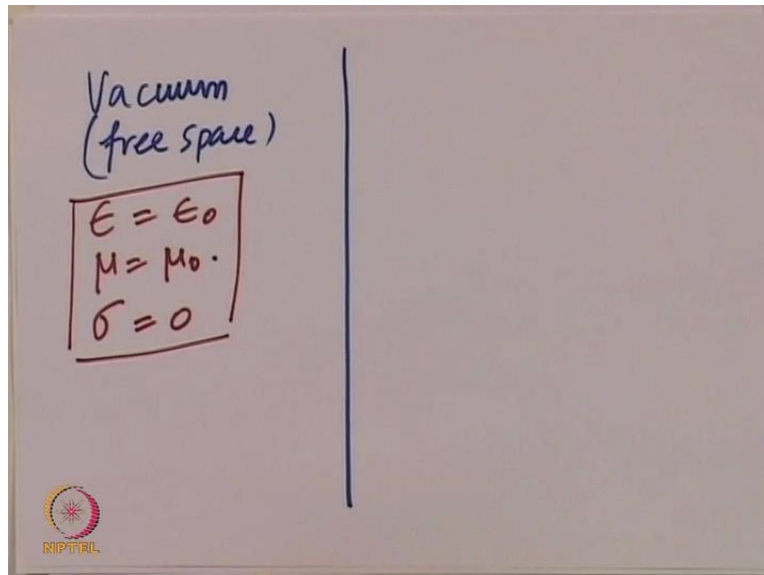 Vacuum
(free space)
ϵ = ϵ₀
μ = μ₀.
σ = 0
NPTEL